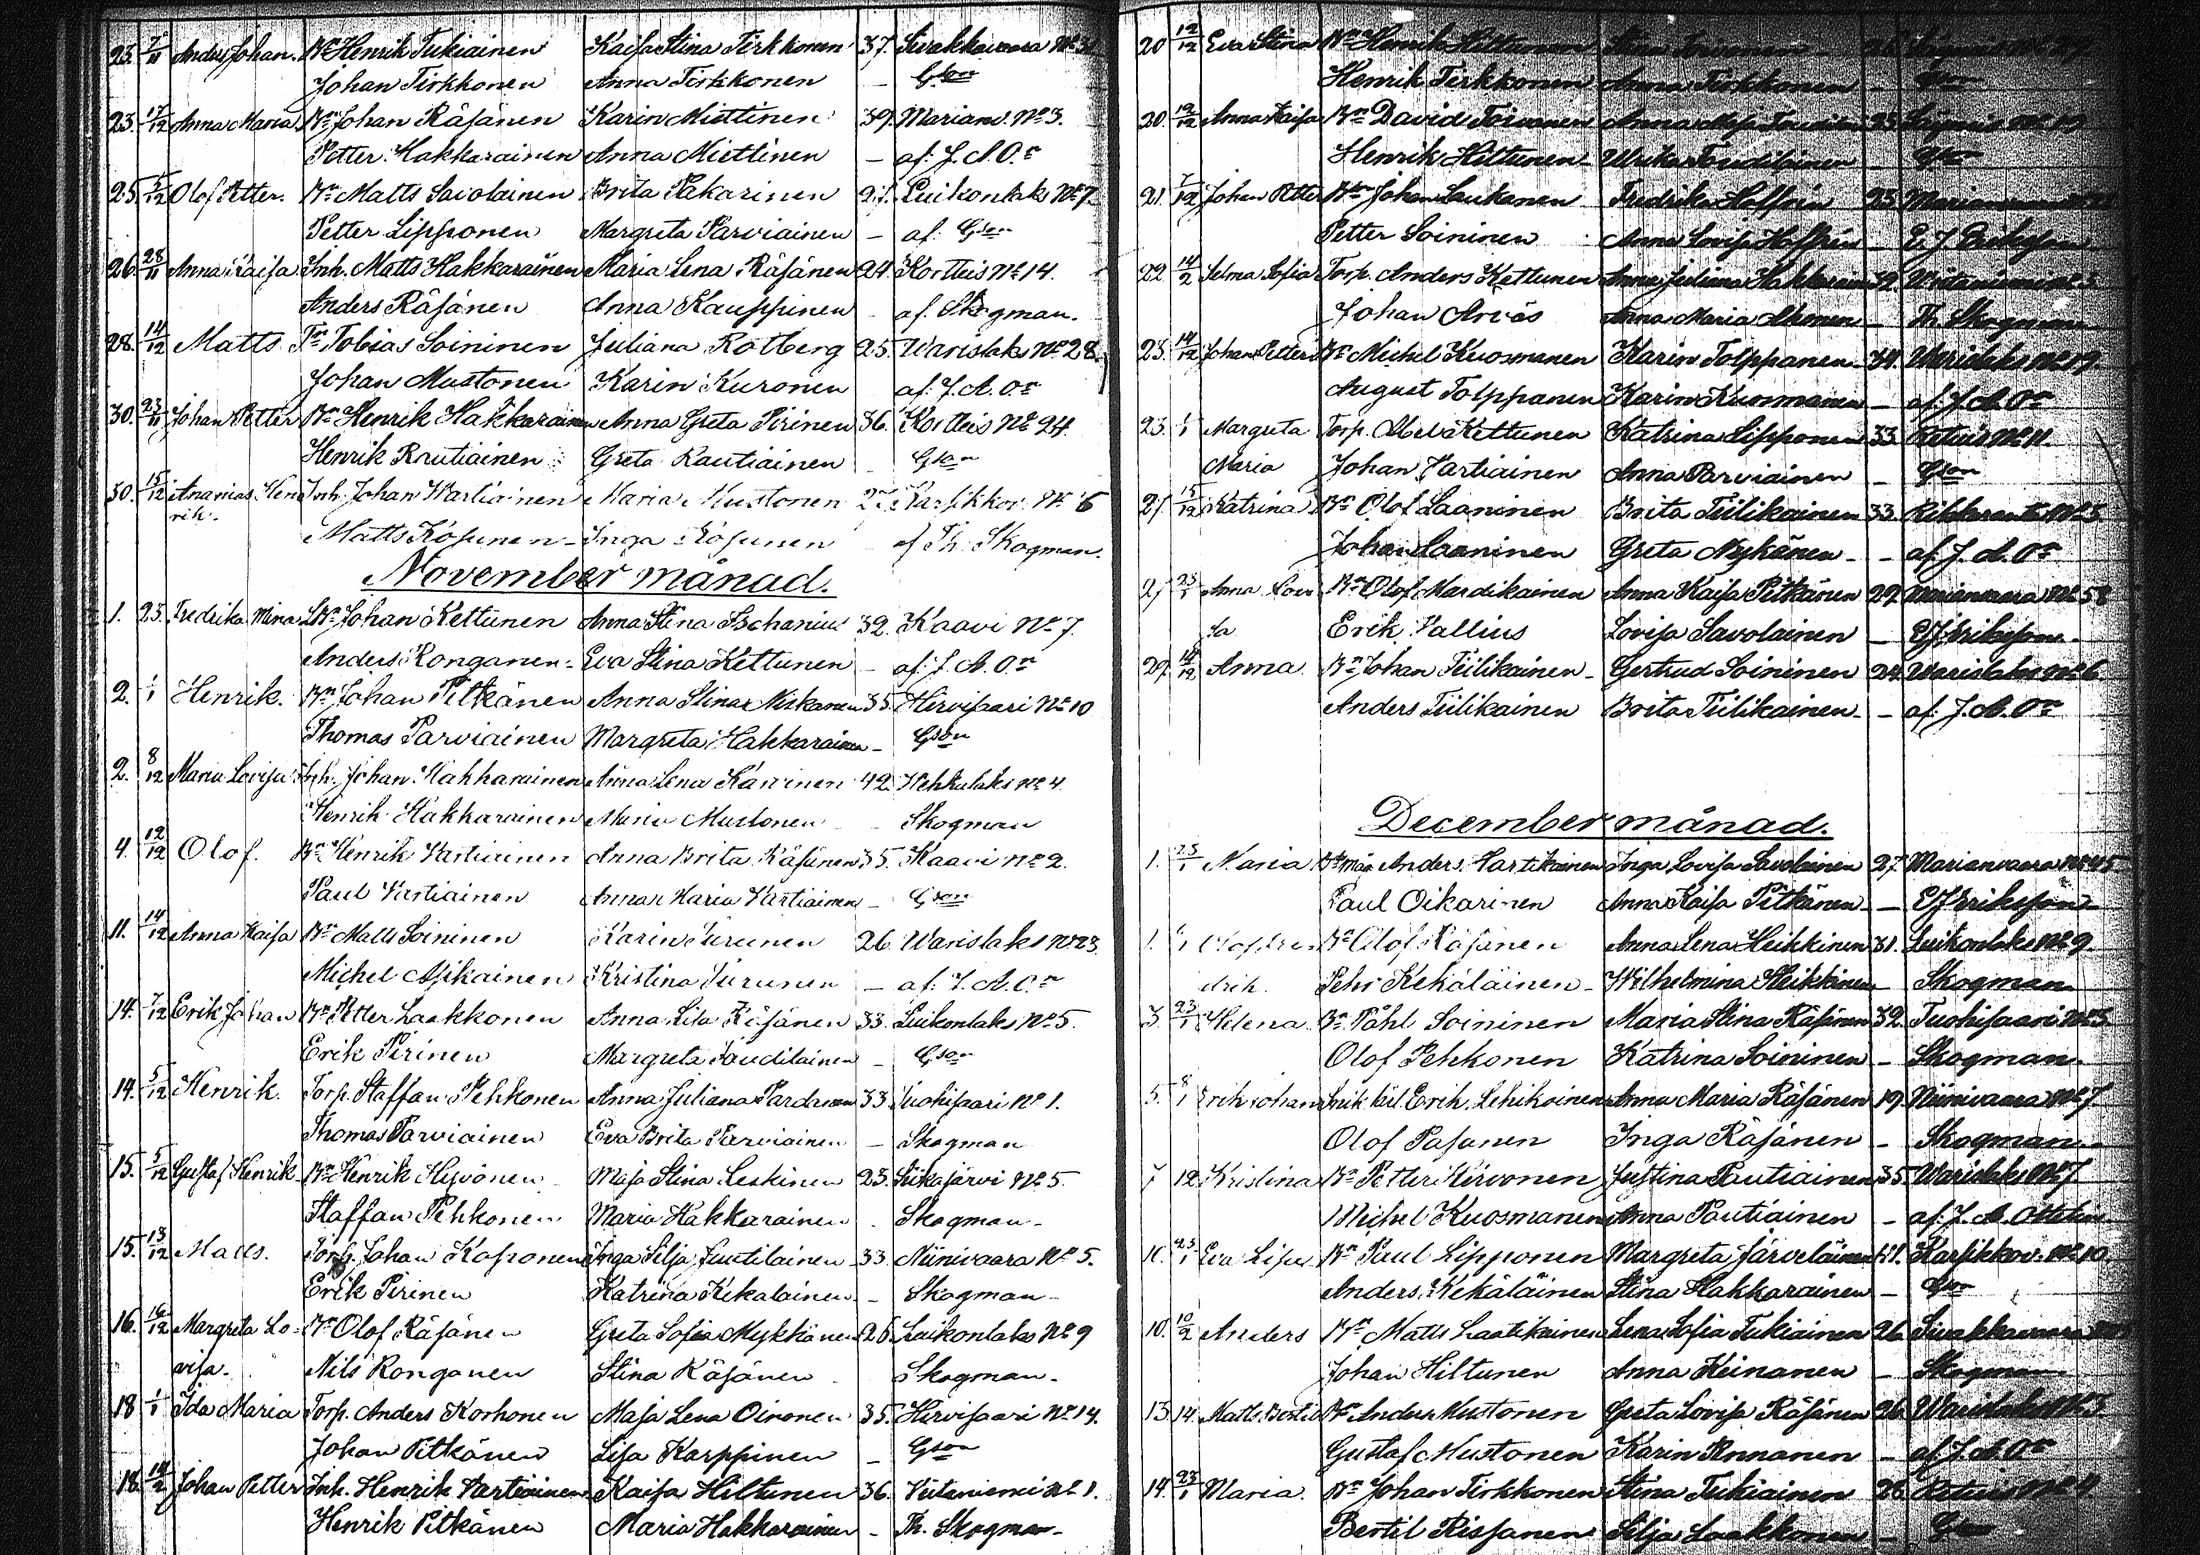 23. 7/11 Anders Johan. Bn Henrik Tukiainen Kaisa Stina Tirkkonen 37. Sivakkavaara No
Johan Tirkkonen Anna Tirkkonen — Gson
23. 17/12 Anna Maria Bn Johan Räsänen Karin Miettinen 39. Marianv. No 3.
Petter Hakkarainen Anna Miettinen — af J. A. O:r
25. 5/12 Olof Petter. Bn Matts Savolainen Brita Pekarinen 27. Luikonlaks No 7
Petter Lipponen Margreta Parviainen — af Gson
26. 28/11 Anna Kaisa Inh. Matts Hakkarainen Maria Lena Räsänen 24. Kortteis No 14.
Anders Räsänen Anna Kauppinen af Skogman.
28. 14/12 Matts Tobias Soininen Juliana Rotberg 25. Warislaks No 28.
Johan Mustonen Karin Kuronen af J. A. O:r
30. 23/11 Johan Petter Bn Henrik Hakkarainen Anna Greta Pirinen 36. Kortteis No 24.
Henrik Rautiainen Greta Rautiainen Gson
30. 15/12 Ananias Hen Inh. Johan Wartiainen Maria Mustonen Karsikkov. No 6
rik. Matts Kosunen Inga Kosunen af Th. Skogman.
November månad.
1. 23. Fredrika Mina Johan Kettunen Anna Stina Tschanius 32. Kaavi No 7.
Anders Ronganen Eva Stina Kettunen — af J. A. O:r
2. 1/1 Henrik. Bn Johan Pitkänen Anna Stina Niskanen 35. Hirvisaari No 10
Thomas Parviainen Margreta Hakkarainen — Gson
2. 8/12 Maria Lovisa Inh. Johan Hakkarainen Anna Lena 42. Hehkulaks No 4.
Henrik Hakkarainen Maria Mustonen Skogman
4. 12/12 Olof. Bn Henrik Vartiainen Anna Brita Räsänen 35. Kaavi No 2.
Paul Vartiainen Anna Maria Vartiainen — Gson
11. 14/12 Anna Kaisa Bn Matts Soininen Karin Turunen 26. Warislaks No 23.
Michel Asikainen Kristina Turunen — af J. A. O:r
14. 7/12 Erik Johan Bn Petter Laakkonen Anna Lisa Räsänen 33. Luikonlaks No 5.
Erik Pirinen Margreta Taudilainen — Gson
14. 5/12 Henrik. Torp. Staffan Pehkonen Anna Juliana Pardanen 33. Tuohisaari No 1.
Thomas Parviainen Eva Brita Parviainen — Skogman
15. 5/12 Gustaf Henrik Bn Henrik Hyvönen Maja Stina Leskinen 23. Siikajärvi No 5.
Staffan Pehkonen Maria Hakkarainen Skogman
15. 13/12 Matts. Torp. Johan Kosonen Inga Silja Juutilainen 33. Niinivaara No 5.
Erik Pirinen Katrina Kekälainen — Skogman
16. 16/12 Margreta Lo- Bn Olof Räsänen Greta Sofia Mykkänen 26 Luikonlaks No 9
visa. Nils Ronganen Stina Räsänen Skogman.
18 1/1 Ida Maria Torp. Anders Korhonen Maja Lena Oinonen 35. Hirvisaari No 14.
Johan Pitkänen Lisa Karppinen — Gson
18. 14/2 Johan Petter Inh. Henrik Vartiainen Kaisa Hiltunen 36. Viitaniemi No 1.
Henrik Pitkänen Maria Hakkarainen — Th. Skogman
20 12/12 Eva Stina Bn Henrik Hiltunen
Henrik Tirkkonen Anna Tirkkonen — Gson
20. 12/12 Anna Kaisa Bn David Toivanen Anna
Henrik Hiltunen Ulrika Taudilainen — Gson
21. 7/12 Johan Petter Johan Laukanen Fredrika Hoffrén 23.
Petter Soininen Anna Lovisa Hoffrén — E. J. Eriksson
22. 14/2 Selma Sofia Torp. Anders Kettunen Anna Juliana Hakkarain 32. Viitaniemi No 3
Johan Arvas Anna Maria Ahonen — Th. Skogman
23. 14/12 Johan Petter Bn Michel Kuosmanen Karin Tolppanen 34. Warislaks No 19.
August Tolppanen Karin — af J. A. O:r
23. 1/1 Margreta Torp. Abel Kettunen Katrina Lipponen 33. Retuis No 11.
Maria Johan Vartiainen Anna Parviainen — Gson
27. 15/12 Katrina Bn Olof Laaninen Brita Tiilikainen 33. Rikkaranta No 5
Johan Laaninen Greta Nykänen — af J. A. O:r
27. 23/1 Anna Lovi Bn Olof Mardikainen Anna Kaisa Pitkänen 29. Marianvaara No 58
sa Erik Vallius Lovisa Savolainen — E. J. Eriksson
29. 18/12 Anna. Bn Johan Tiilikainen Gertrud Soininen 24. Warislaks No 6.
Anders Tiilikainen Brita Tiilikainen — af J. A. O:r
December månad.
1. 23/1 Maria Anders Hartikainen Inga Lovisa Savolainen 27. Marianvaara No 45
Paul Oikarinen Anna Kaisa Pitkänen — E J Eriksson
1. 6/1 Olof Fre Bn Olof Räsänen Anna Lena Heikkinen 31. Luikonlaks No 9.
drik. Pehr Kekäläinen Wilhelmina Heikkinen Skogman
3. 23/1 Helena Bn Påhl Soininen Maria Stina Räsänen 32. Tuohisaari No 3
Olof Pehkonen Katrina Soininen — Skogman
5. 8/1 Erik Johan Erik Lehikoinen Anna Maria Räsänen 19. Niinivaara No 7
Olof Pasanen Inga Räsänen — Skogman
7 12 Kristina Bn Petter Hirvonen Justina Pautiainen 35. Warislaks No 7.
Michel Kuosmanen Anna Pautiainen — af J. A.
10. 23/1 Eva Lisa Bn Paul Lipponen Margreta Järveläinen 41. Karsikkov. No 10
Anders Kekäläinen Stina Hakkarainen — Gson
10. 10/2 Anders Bn Matts Laatikainen Lena Sofia Tukiainen 26. Sivakkavaara
Johan Hiltunen Anna Keinanen — Skogman
13 14. Matts Bertil Bn Anders Mustonen Greta Lovisa Räsänen 26. Warislaks No 3
Gustaf Mustonen Karin Annanen — af J. A. O:r
14. 23/1 Maria. Bn Johan Tirkkonen Stina Tukiainen 26. Retuis No 4
Bertil Rissanen Silja Laakkonen — Gson